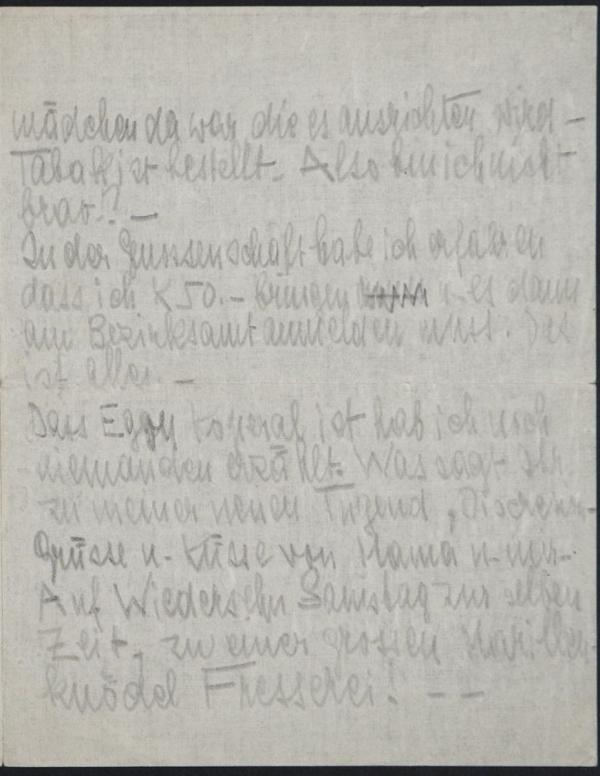 mädchen da war die es ausrichten wird –
Tabak ist bestellt. Also bin ich nicht
brav? –
In der Genossenschaft habe ich erfahren
dass ich K 50.– bringen u. es dann
am Bezirksamt anmelden muss. Das
ist alles. –
Dass Eggy Korperal ist hab ich noch
niemanden erzählt. Was sagt ihr
zu meiner neuen Tugend „Discrezi-
Grüsse u. Küsse von Mama u.
Auf Wiedersehn Samstag zur selben
Zeit, zu einer grossen Marillen-
knödel Fresserei! – –